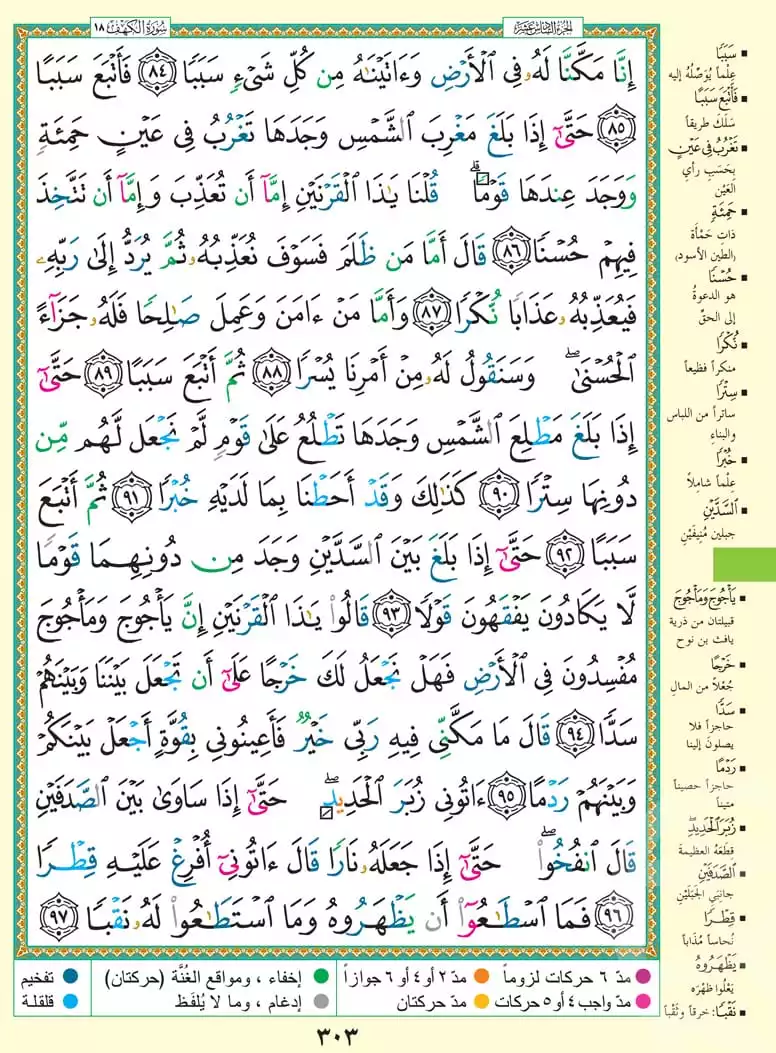 الجزء السادس عشر
سورة الكهف ١٨
إِنَّا مَكَّنَّا لَهُۥ فِى ٱلْأَرْضِ وَءَاتَيْنَٰهُ مِن كُلِّ شَىْءٍ سَبَبًا ٨٤ فَأَتْبَعَ سَبَبًا
٨٥ حَتَّىٰٓ إِذَا بَلَغَ مَغْرِبَ ٱلشَّمْسِ وَجَدَهَا تَغْرُبُ فِى عَيْنٍ حَمِئَةٍ
وَوَجَدَ عِندَهَا قَوْمًا ۗ قُلْنَا يَٰذَا ٱلْقَرْنَيْنِ إِمَّآ أَن تُعَذِّبَ وَإِمَّآ أَن تَتَّخِذَ
فِيهِمْ حُسْنًا ٨٦ قَالَ أَمَّا مَن ظَلَمَ فَسَوْفَ نُعَذِّبُهُۥ ثُمَّ يُرَدُّ إِلَىٰ رَبِّهِۦ
فَيُعَذِّبُهُۥ عَذَابًا نُّكْرًا ٨٧ وَأَمَّا مَنْ ءَامَنَ وَعَمِلَ صَٰلِحًا فَلَهُۥ جَزَآءً
ٱلْحُسْنَىٰ ۖ وَسَنَقُولُ لَهُۥ مِنْ أَمْرِنَا يُسْرًا ٨٨ ثُمَّ أَتْبَعَ سَبَبًا ٨٩ حَتَّىٰٓ
إِذَا بَلَغَ مَطْلِعَ ٱلشَّمْسِ وَجَدَهَا تَطْلُعُ عَلَىٰ قَوْمٍ لَّمْ نَجْعَل لَّهُم مِّن
دُونِهَا سِتْرًا ٩٠ كَذَٰلِكَ وَقَدْ أَحَطْنَا بِمَا لَدَيْهِ خُبْرًا ٩١ ثُمَّ أَتْبَعَ
سَبَبًا ٩٢ حَتَّىٰٓ إِذَا بَلَغَ بَيْنَ ٱلسَّدَّيْنِ وَجَدَ مِن دُونِهِمَا قَوْمًا
لَّا يَكَادُونَ يَفْقَهُونَ قَوْلًا ٩٣ قَالُوا۟ يَٰذَا ٱلْقَرْنَيْنِ إِنَّ يَأْجُوجَ وَمَأْجُوجَ
مُفْسِدُونَ فِى ٱلْأَرْضِ فَهَلْ نَجْعَلُ لَكَ خَرْجًا عَلَىٰٓ أَن تَجْعَلَ بَيْنَنَا وَبَيْنَهُمْ
سَدًّا ٩٤ قَالَ مَا مَكَّنِّى فِيهِ رَبِّى خَيْرٌ فَأَعِينُونِى بِقُوَّةٍ أَجْعَلْ بَيْنَكُمْ
وَبَيْنَهُمْ رَدْمًا ٩٥ ءَاتُونِى زُبَرَ ٱلْحَدِيدِ ۖ حَتَّىٰٓ إِذَا سَاوَىٰ بَيْنَ ٱلصَّدَفَيْنِ
قَالَ ٱنفُخُوا۟ ۖ حَتَّىٰٓ إِذَا جَعَلَهُۥ نَارًا قَالَ ءَاتُونِىٓ أُفْرِغْ عَلَيْهِ قِطْرًا
٩٦ فَمَا ٱسْطَٰعُوٓا۟ أَن يَظْهَرُوهُ وَمَا ٱسْتَطَٰعُوا۟ لَهُۥ نَقْبًا ٩٧
سَبَبًا
عِلْماً يُوَصِّلُهُ إليه
فَأَتْبَعَ سَبَبًا
سَلَكَ طريقاً
تَغْرُبُ فِى عَيْنٍ
بِحَسَبِ رأي
العَيْن
حَمِئَةٍ
ذات حَمْأة
(الطين الأسود)
حُسْنًا
هو الدعوةُ
إلى الحقّ
نُّكْرًا
منكراً فظيعاً
سِتْرًا
ساتراً من اللباس
والبناءِ
خُبْرًا
عِلْماً شاملاً
ٱلسَّدَّيْنِ
جبلين مُنيفَيْنِ
يَأْجُوجَ وَمَأْجُوجَ
قبيلتان من ذرية
يافث بن نوح
خَرْجًا
جُعْلاً من المال
سَدًّا
حاجزاً فلا
يصلونَ إلينا
رَدْمًا
حاجزاً حصيناً
متيناً
زُبَرَ ٱلْحَدِيدِ ۖ
قِطَعَهُ العظيمةَ
ٱلصَّدَفَيْنِ
جانبَي الجَبَلَيْنِ
قِطْرًا
نُحاساً مُذَاباً
يَظْهَرُوهُ
يَعْلُوا ظهْرَه
نَقْبًا: خرقاً وثَقْباً
مدّ ٦ حركات لزوماً
مدّ ٢ أو ٤ أو ٦ جوازاً
إخفاء ، ومواقع الغُنَّة (حركتان)
تفخيم
مدّ واجب ٤ أو ٥ حركات
مدّ حركتان
إدغام ، وما لا يُلفَظ
قلقلة
٣٠٣